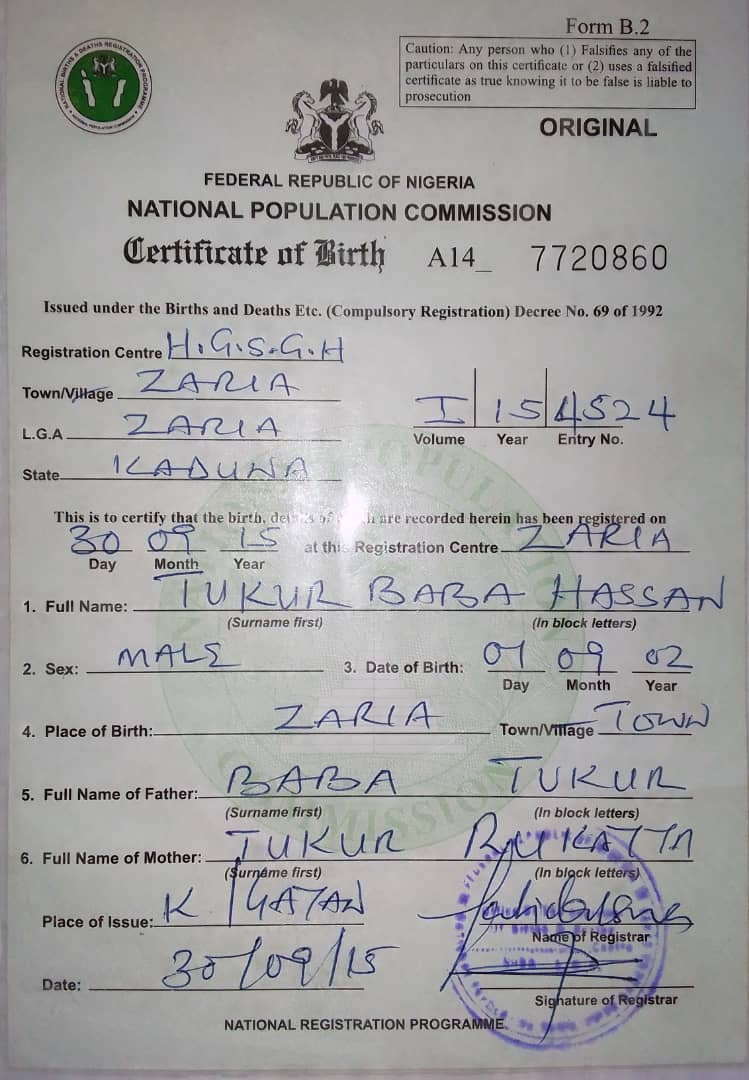 Form B.2
Caution: Any person who (1) Falsifies any of the
particulars on this certificate or (2) uses a falsified
certificate as true knowing it to be false is liable to
prosecution
NATIONAL BIRTHS & DEATHS REGISTRATION PROGRAMME
NATIONAL POPULATION COMMISSION
ORIGINAL
FEDERAL REPUBLIC OF NIGERIA
NATIONAL POPULATION COMMISSION
Certificate of Birth A14_ 7720860
Issued under the Births and Deaths Etc. (Compulsory Registration) Decree No. 69 of 1992
Registration Centre H.G.S.G.H
Town/Village ZARIA
L.G.A ZARIA
State KADUNA
I 15 4524
Volume Year Entry No.
This is to certify that the birth, details of are recorded herein has been registered on
30 09 15 at this Registration Centre ZARIA
Day Month Year
1. Full Name: TUKUR BABA HASSAN
(Surname first) (In block letters)
2. Sex: MALE 3. Date of Birth: 01 09 02
Day Month Year
4. Place of Birth: ZARIA Town/Village TOWN
5. Full Name of Father: BABA TUKUR
(Surname first) (In block letters)
6. Full Name of Mother: TUKUR
(Surname first) (In block letters)
Place of Issue: K/GAYAN
Name of Registrar
Date: 30/09/15
Signature of Registrar
NATIONAL REGISTRATION PROGRAMME